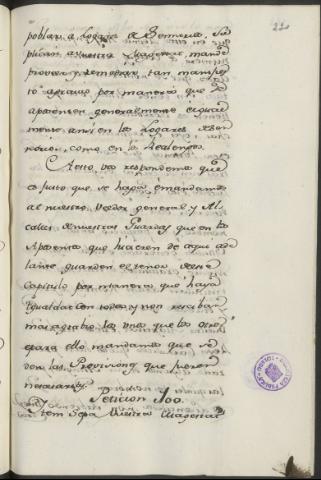 22
poblar a Lugares de Señorio, Su
plican a vuestra Magestad, mande
proveer y remediar tan manifies
to agravio por manera que se
aposenten generalmente e igual
mente, ansi en los Lugares de Se
ñorio, como en los Realengos.
A esto vos respondemos que
es justo que se haga, e mandamos
al nuestro Veedor general y Al
caldes de nuestras Guardas que en los
Aposentos que hicieren de aqui ade
lante guarden el tenor deste
Capitulo por manera que haya
igualdad con todos y non reciban
mas agravio los unos que los otros
e para ello mandamos que se
den las Provisiones que fueren
necesarias.
Peticion 100.
Iten Sepa Vuestra Magestad